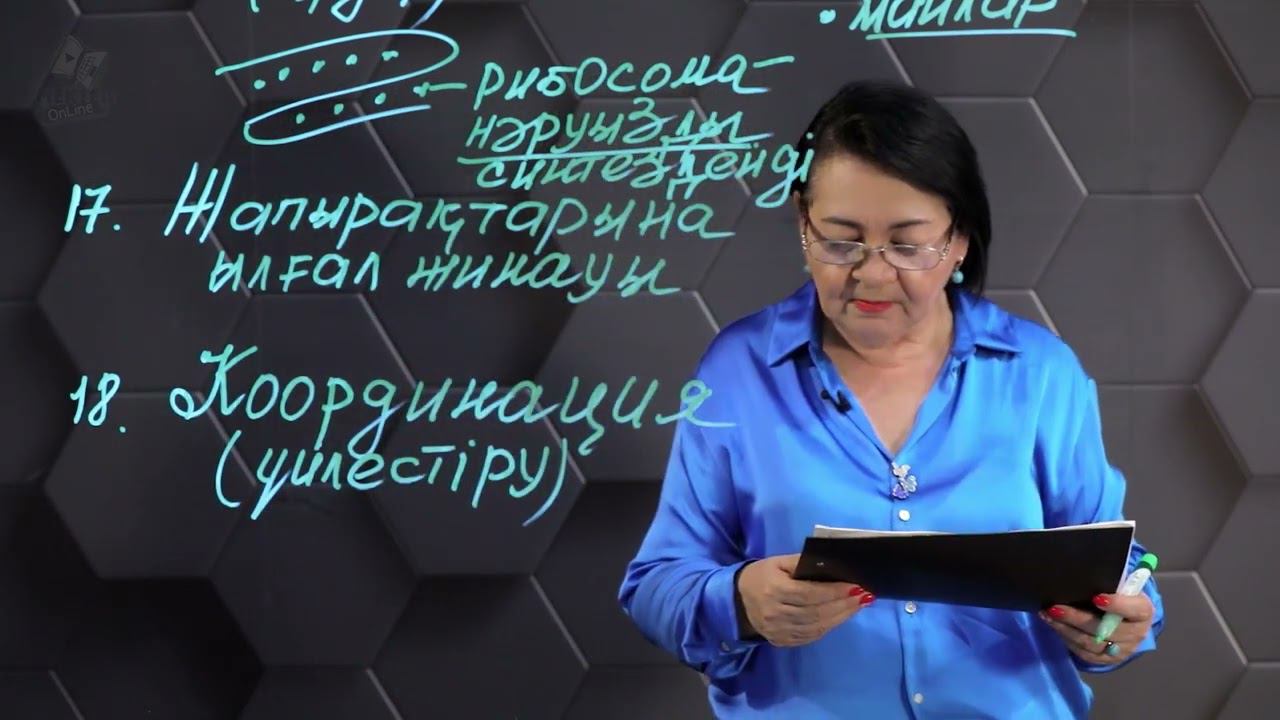 • майлар
рибосома-
нәруызды
синтездейді
17. Жапырақтарына
ылғал жинауы
18. Координация
(үйлестіру)
OnLine